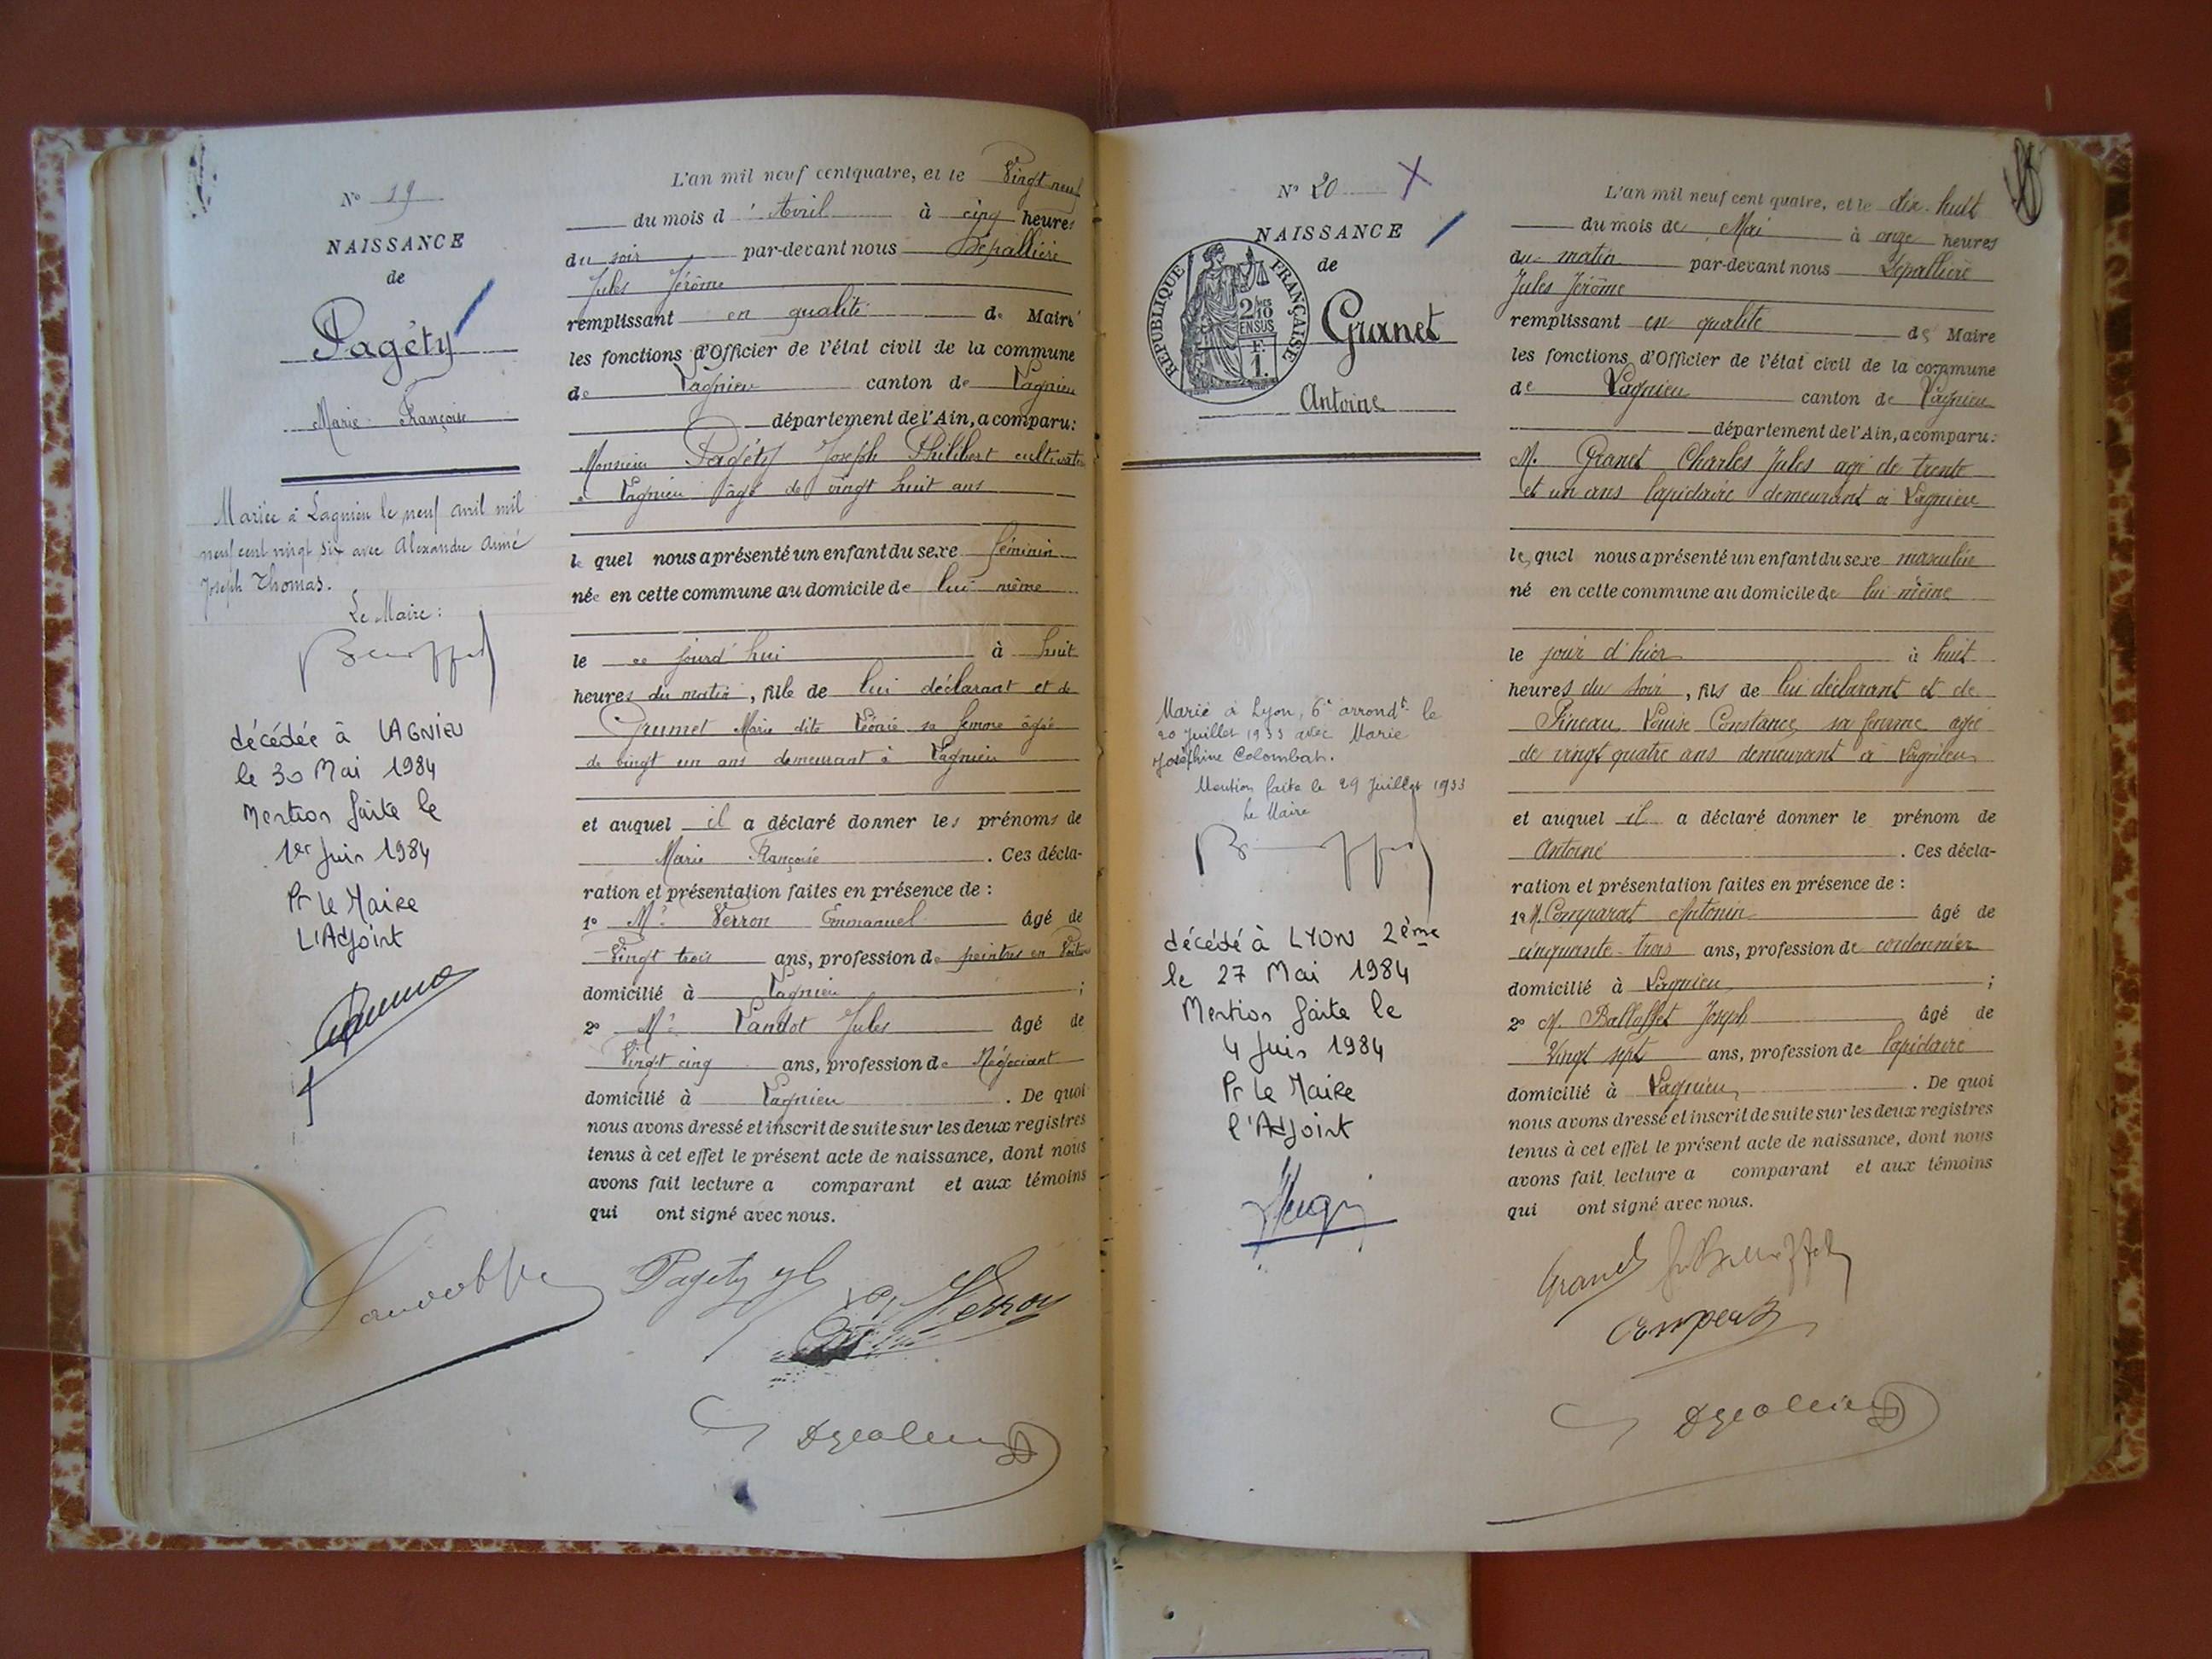 N° 19
NAISSANCE
de
Pagéty
Marie Françoise
Mariée à Lagnieu le neuf avril mil
neuf cent vingt six avec Alexandre Aimé
Joseph Thomas.
Le Maire :
décédée à LAGNIEU
le 30 Mai 1984
Mention faite le
1er Juin 1984
Pr le Maire
L'Adjoint
L'an mil neuf cent quatre, et le Vingt neuf
du mois d'Avril à cinq heures
du soir par-devant nous Dépallière
Jules Jérôme
remplissant en qualité de Maire
les fonctions d'Officier de l'état civil de la commune
de Lagnieu canton de Lagnieu
département de l'Ain, a comparu :
Monsieur Pagéty Joseph Philibert cultivateur
à Lagnieu âgé de vingt huit ans
le quel nous a présenté un enfant du sexe féminin
née en cette commune au domicile de lui même
le ce jourd'hui à huit
heures du matin, fille de lui déclarant et de
Grumet Marie dite Léonie sa femme âgée
de vingt un ans demeurant à Lagnieu
et auquel il a déclaré donner les prénoms de
Marie Françoise . Ces décla-
ration et présentation faites en présence de :
1° Mr Verron Emmanuel âgé de
Vingt trois ans, profession de peintre en
domicilié à Lagnieu ;
2° Mr Landot Jules âgé de
Vingt cinq ans, profession de Négociant
domicilié à Lagnieu . De quoi
nous avons dressé et inscrit de suite sur les deux registres
tenus à cet effet le présent acte de naissance, dont nous
avons fait lecture a comparant et aux témoins
qui ont signé avec nous.
Pagéty
Verron
N° 20 X
NAISSANCE
de
REPUBLIQUE FRANÇAISE
2/10
EN SUS
F.
1.
Granet
Antoine
Marié à Lyon, 6e arrondt le
20 Juillet 1933 avec Marie
Joséphine Colombat.
Mention faite le 29 Juillet 1933
Le Maire
décédé à LYON 2ème
le 27 Mai 1984
Mention faite le
4 Juin 1984
Pr le Maire
l'Adjoint
L'an mil neuf cent quatre, et le dix-huit
du mois de Mai à onze heures
du matin par-devant nous Dépallière
Jules Jérôme
remplissant en qualité de Maire
les fonctions d'Officier de l'état civil de la commune
de Lagnieu canton de Lagnieu
département de l'Ain, a comparu :
M. Granet Charles Jules agé de trente
et un ans lapidaire demeurant à Lagnieu
le quel nous a présenté un enfant du sexe masculin
né en cette commune au domicile de lui même
le jour d'hier à huit
heures du soir, fils de lui déclarant et de
Pineau Louise Constance sa femme agée
de vingt quatre ans demeurant à Lagnieu
et auquel il a déclaré donner le prénom de
Antoine . Ces décla-
ration et présentation faites en présence de :
1° M. Comparat Antonin âgé de
cinquante-trois ans, profession de cordonnier
domicilié à Lagnieu ;
2° M. Balloffet Joseph âgé de
Vingt sept ans, profession de lapidaire
domicilié à Lagnieu . De quoi
nous avons dressé et inscrit de suite sur les deux registres
tenus à cet effet le présent acte de naissance, dont nous
avons fait lecture a comparant et aux témoins
qui ont signé avec nous.
Granet